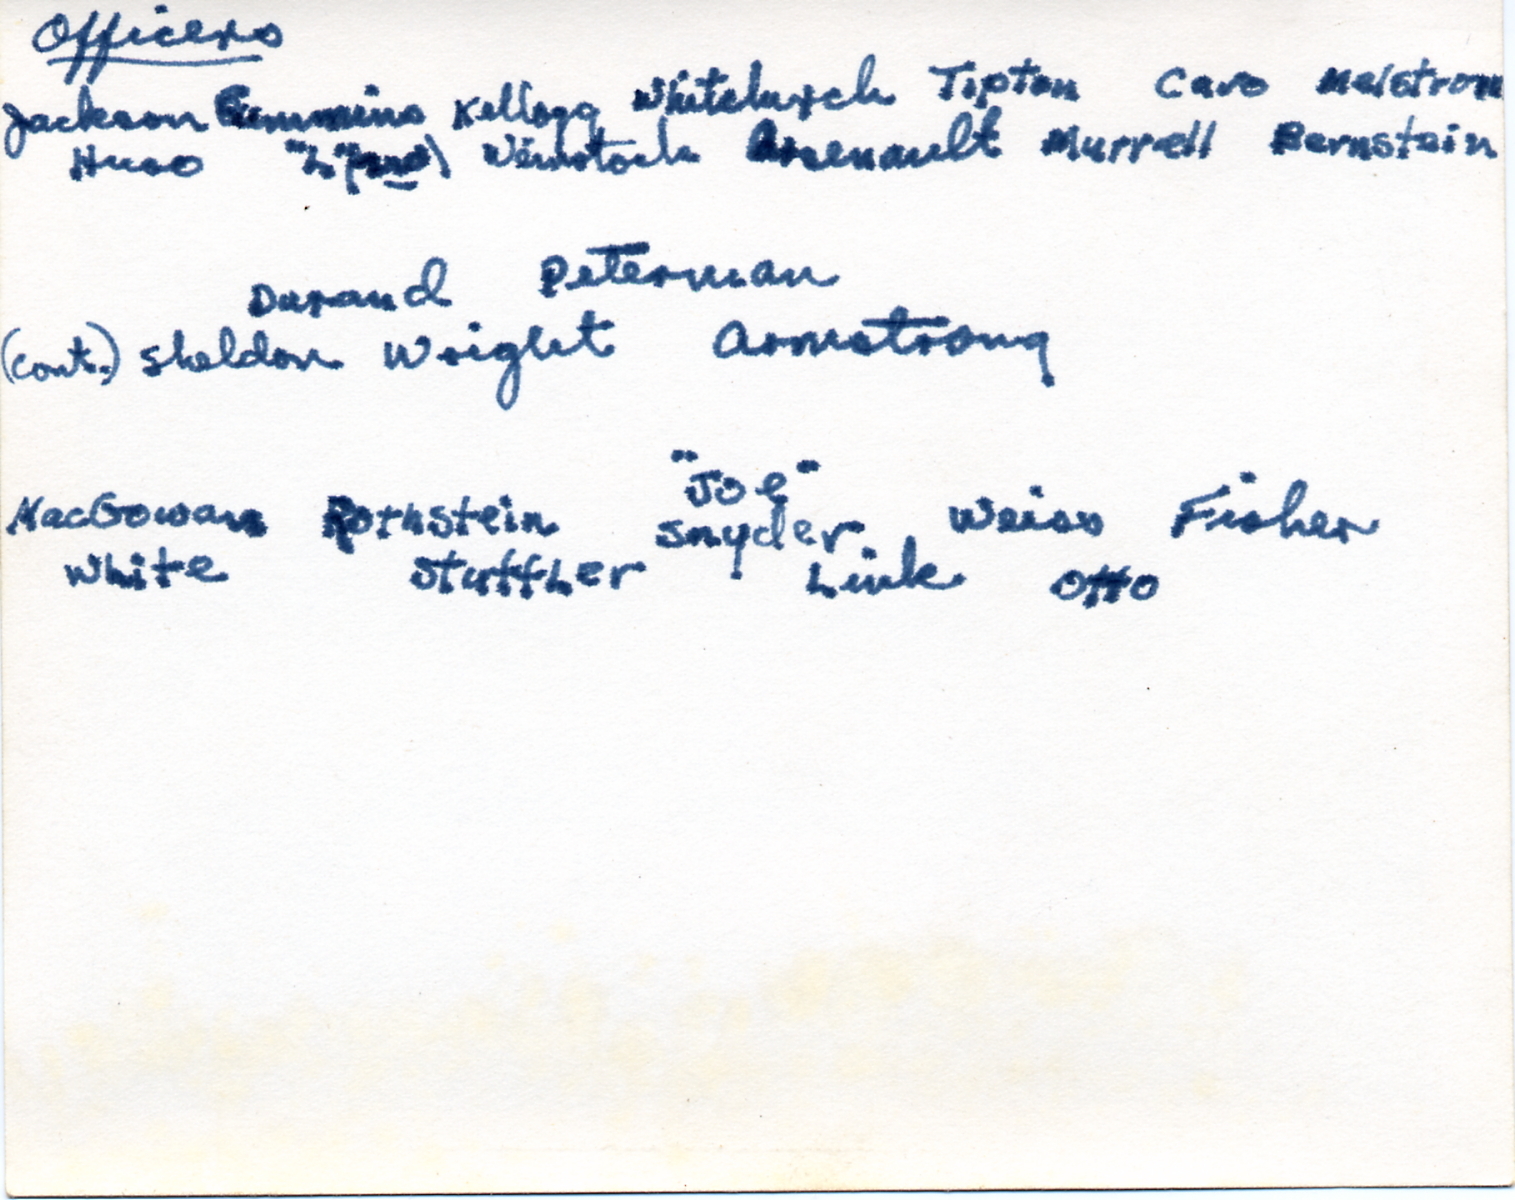 Officers
Jackson Cummins Kellogg Whitchurch Tipton Caro Malstrom
Huso "L" Weinstock Arsenault Murrell Bernstein
Durand Peterman
(cont.) Sheldon Wright Armstrong
"Joe"
MacGowan Rothstein Snyder Weiss Fisher
White Stuffler Link Otto